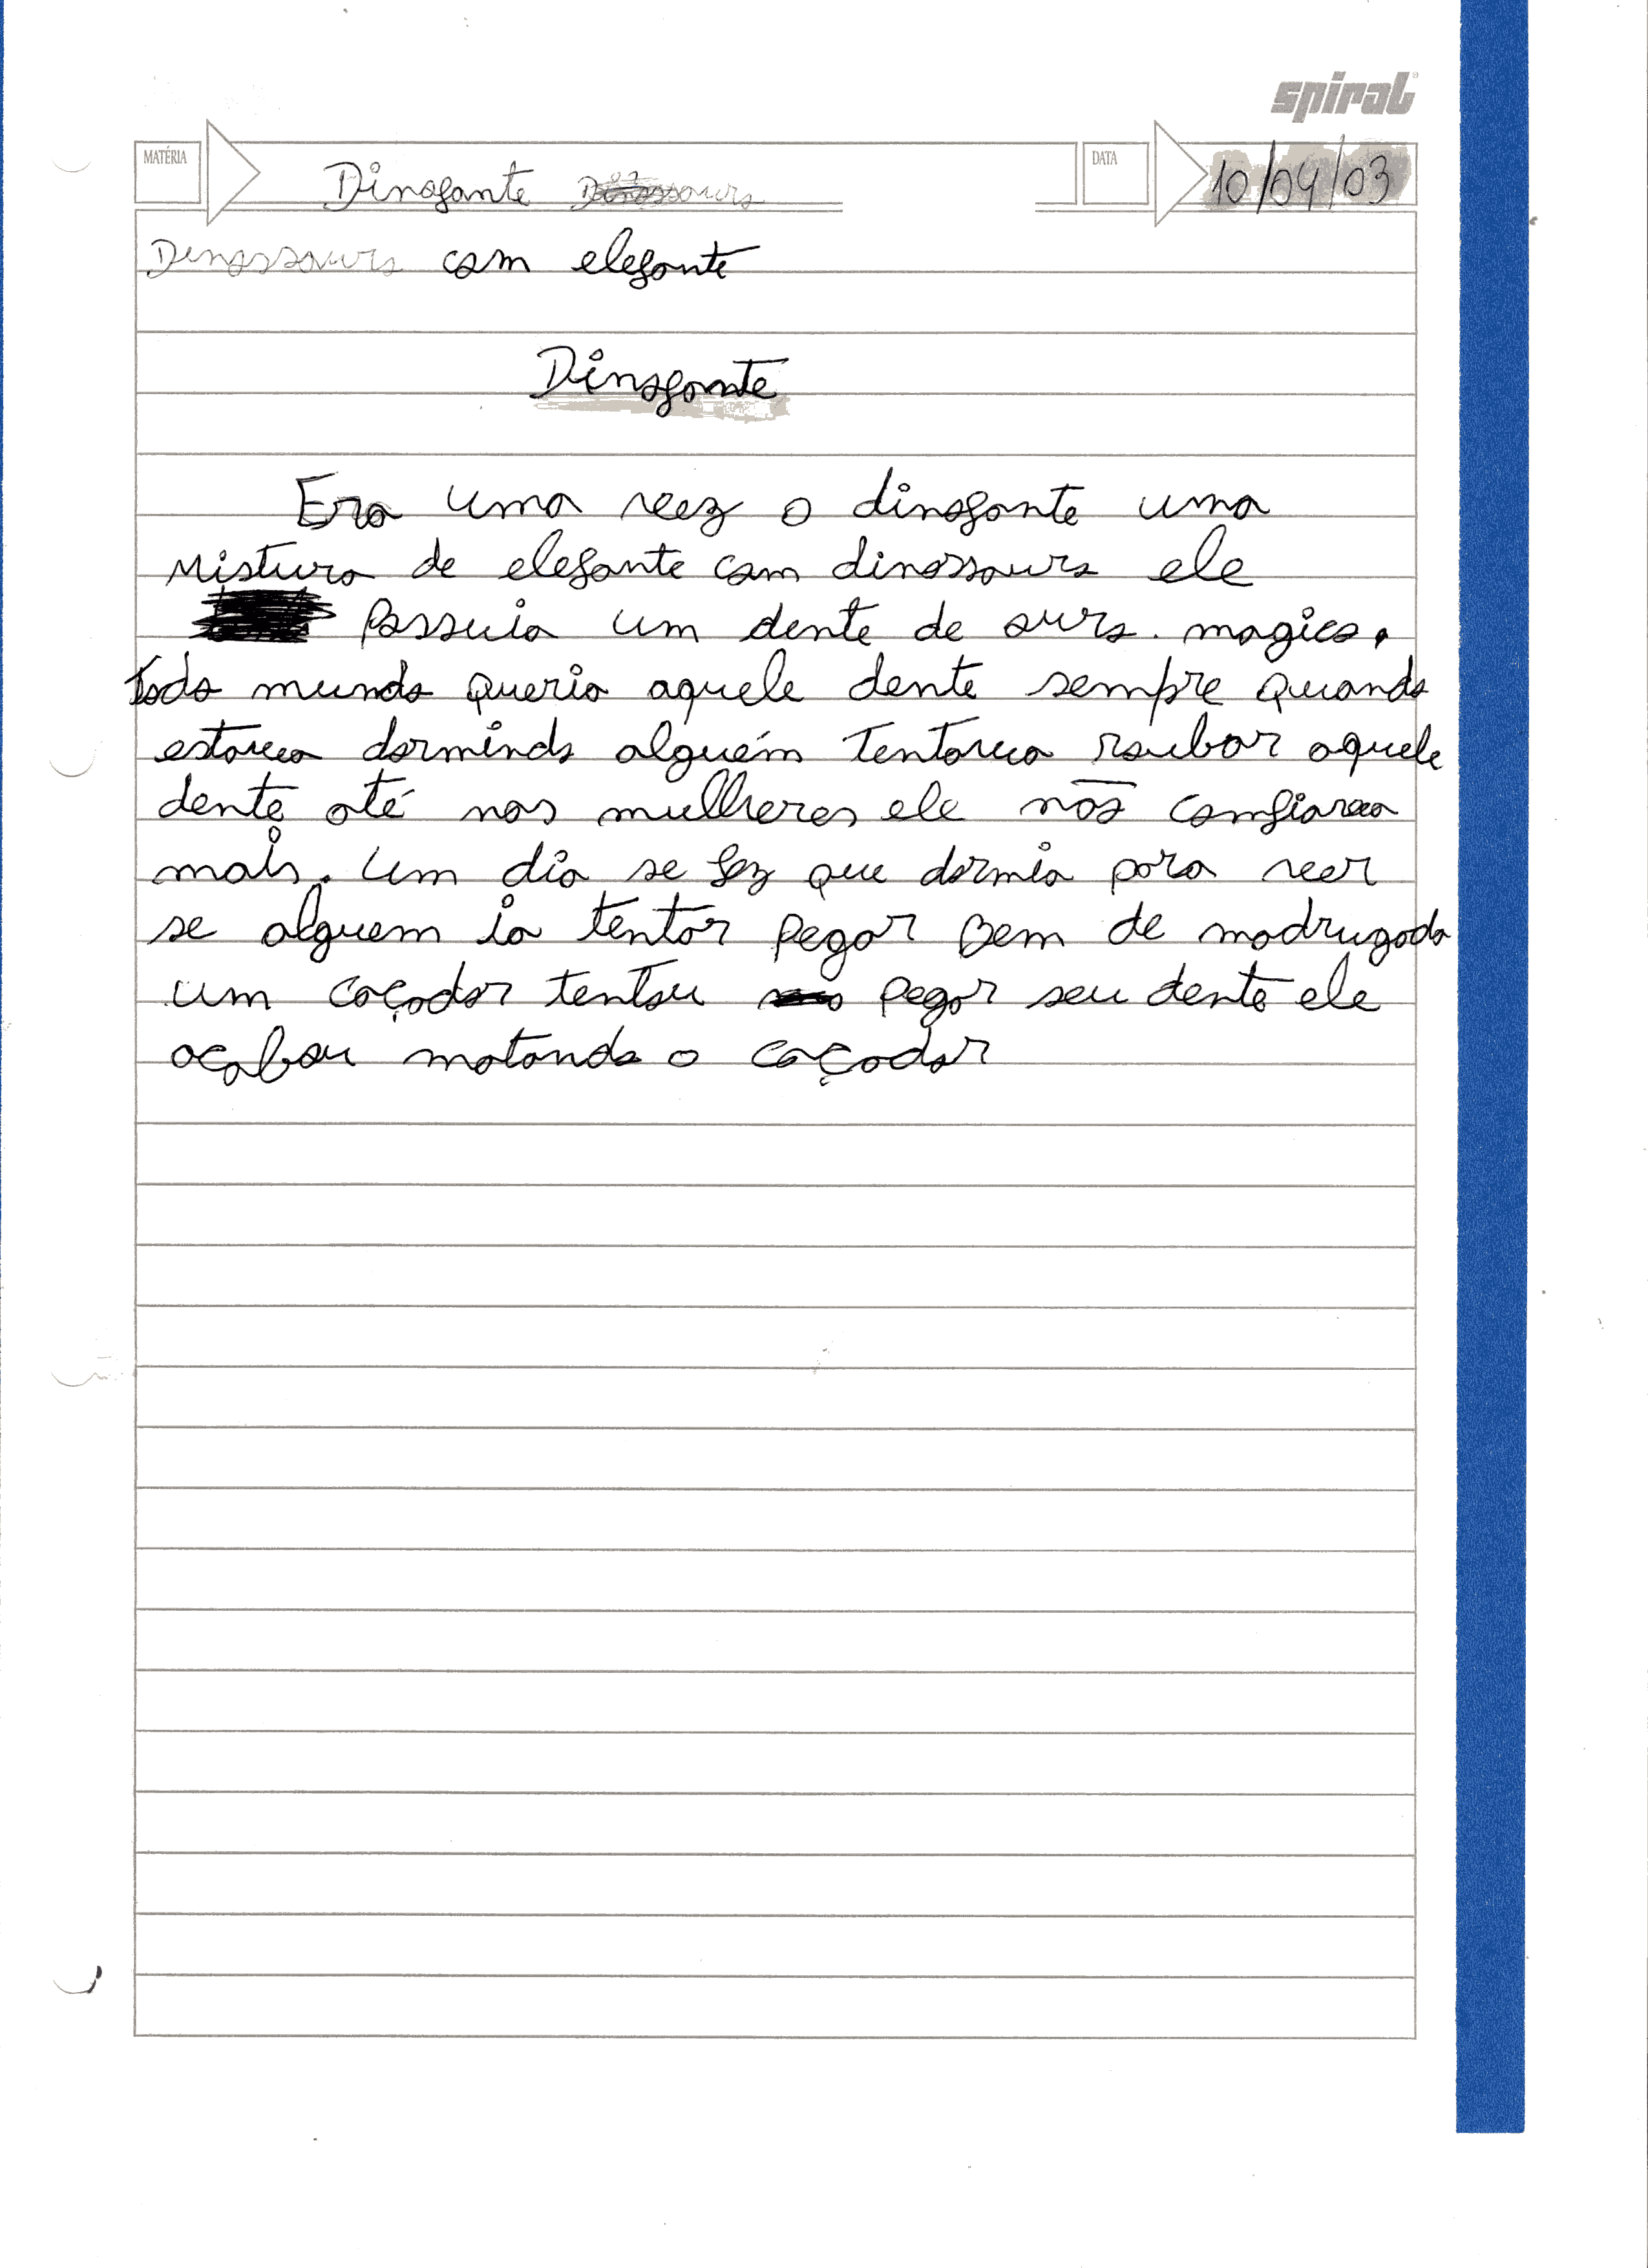 spiral
MATÉRIA Dinofante Dinossauro DATA 10/04/03
Denossauro com elefante
Dinofante
Era uma vez o dinofante uma
mistura de elefante com dinossauro ele
possuia um dente de ouro. magico.
todo mundo queria aquele dente sempre quando
estava dormindo alguém tentava roubar aquele
dente até nas mulheres ele não confiava
mais. Um dia se fez que dormia para ver
se alguem ia tentar pegar bem de madrugada
um caçador tentou pegar seu dente ele
acabou matando o caçador